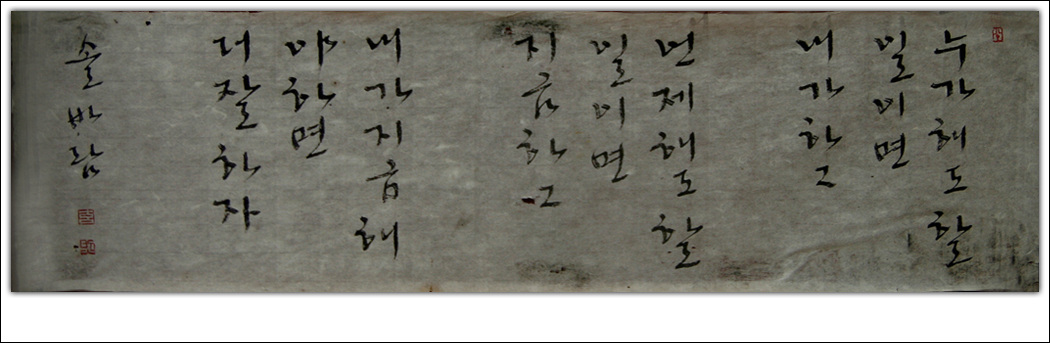 누가해도할
일이면
내가하고
언제해도할
일이면
지금하고
내가지금해
야하면
더잘하자
솔바람